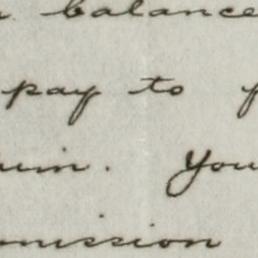 balance
pay to
You
mission